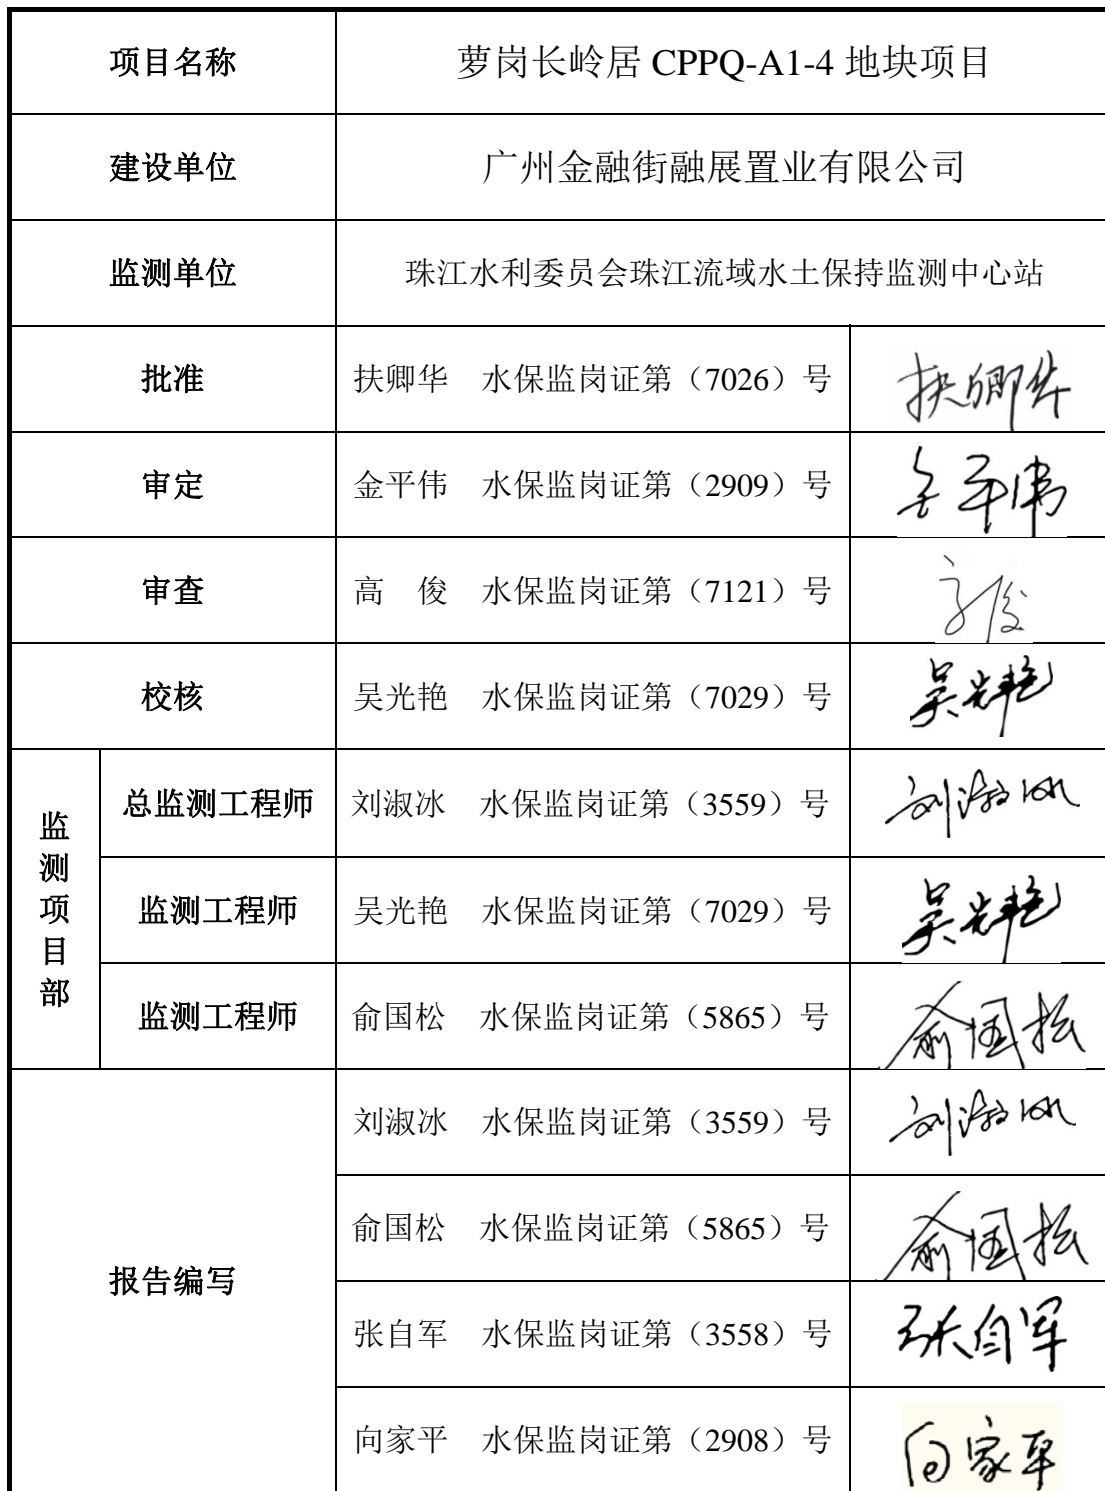 项目名称 萝岗长岭居 CPPQ-A1-4 地块项目
建设单位 广州金融街融展置业有限公司
监测单位 珠江水利委员会珠江流域水土保持监测中心站
批准 扶卿华 水保监岗证第（7026）号 扶卿华
审定 金平伟 水保监岗证第（2909）号 金平伟
审查 高 俊 水保监岗证第（7121）号 高俊
校核 吴光艳 水保监岗证第（7029）号 吴光艳
监测项目部
总监测工程师 刘淑冰 水保监岗证第（3559）号 刘淑冰
监测工程师 吴光艳 水保监岗证第（7029）号 吴光艳
监测工程师 俞国松 水保监岗证第（5865）号 俞国松
报告编写
刘淑冰 水保监岗证第（3559）号 刘淑冰
俞国松 水保监岗证第（5865）号 俞国松
张自军 水保监岗证第（3558）号 张自军
向家平 水保监岗证第（2908）号 向家平